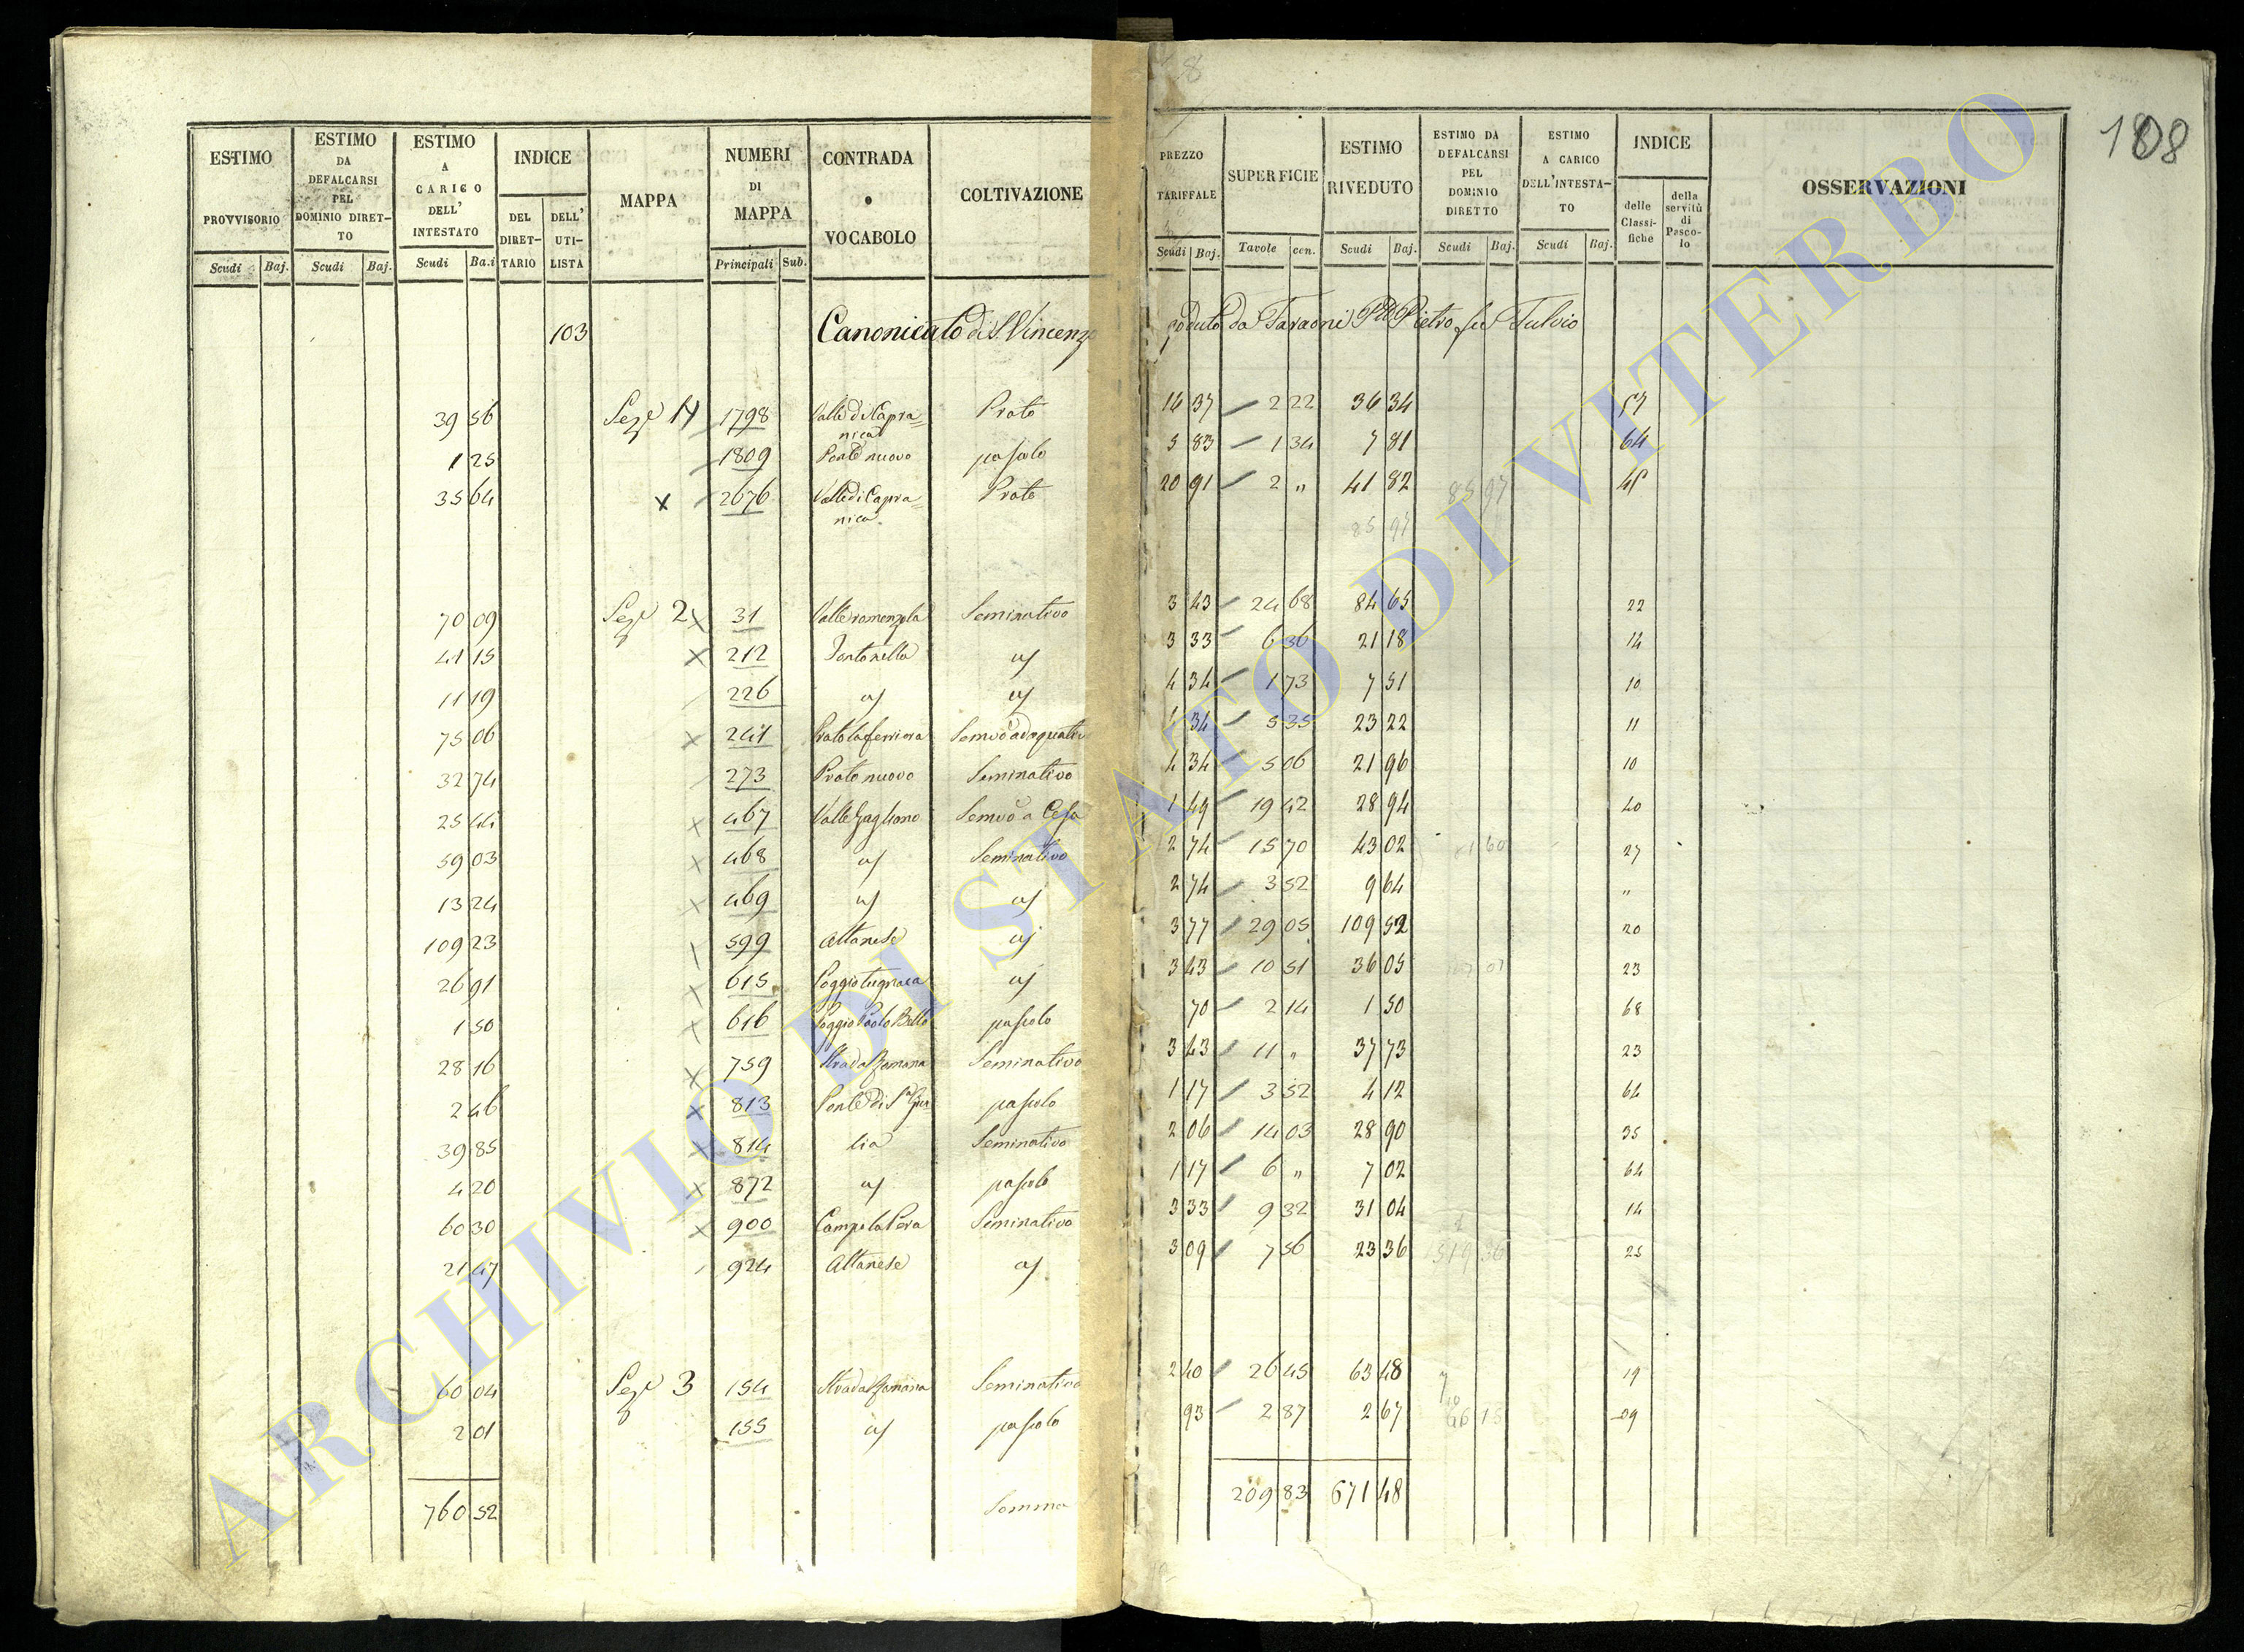 188
ESTIMO PROVVISORIO Scudi Baj.
ESTIMO DA DEFALCARSI PEL DOMINIO DIRET-TO Scudi Baj.
ESTIMO A CARICO DELL' INTESTATO Scudi Ba.i
INDICE DEL DIRET-TARIO DELL' UTI-LISTA
MAPPA
NUMERI DI MAPPA Principali Sub.
CONTRADA o VOCABOLO
COLTIVAZIONE
PREZZO TARIFFALE Scudi Baj.
SUPERFICIE Tavole cen.
ESTIMO RIVEDUTO Scudi Baj.
ESTIMO DA DEFALCARSI PEL DOMINIO DIRETTO Scudi Baj.
ESTIMO A CARICO DELL'INTESTA-TO Scudi Baj.
INDICE delle Classi-fiche della servitù di Pasco-lo
OSSERVAZIONI
103 Canonicato di S. Vincenzo goduto da Pietro fu Fulvio
39 56 Seze 1 1798 Valle di Capra=nica Prato 16 37 2 22 36 34
1 25 1809 Ponte nuovo pascolo 5 83 1 34 7 81 64
35 64 x 2676 Valle di Capra=nica Prato 20 91 2 " 41 82 45
85 97
70 09 Seze 2 x 31 Seminativo 3 43 24 68 84 65 22
41 15 x 212 Fontonella id 3 33 6 36 21 18 14
11 19 226 id id 4 34 1 73 7 51 10
75 06 x 241 4 34 5 35 23 22 11
32 74 273 Prato nuovo Seminativo 4 34 5 06 21 96 10
25 44 x 467 Valle Gagliano Semvo a Cesa 1 49 19 42 28 94 40
59 03 x 468 id Seminativo 2 74 15 70 43 02 27
13 24 x 469 id id 2 74 3 52 9 64 "
109 23 599 Altanese id 3 77 29 05 109 52 20
26 91 x 615 id 3 43 10 51 36 05 23
1 50 x 616 Poggio Paolo Bello pascolo 70 2 14 1 50 68
28 16 x 759 Strada Romana Seminativo 3 43 11 " 37 73 23
2 46 x 813 Ponte di Sa Giu pascolo 1 17 3 52 4 12 64
39 85 x 814 lia Seminativo 2 06 14 03 28 90 35
4 20 x 872 id pascolo 1 17 6 " 7 02 64
60 30 x 900 Campo la Pera Seminativo 3 33 9 32 31 04 14
21 47 924 Altanese id 3 09 7 56 23 36 25
60 04 Seze 3 154 Strada Romana Seminativo 2 40 26 45 63 48 19
2 01 155 id pascolo 93 2 87 2 67
760 52 Somma 209 83 671 48
ARCHIVIO DI STATO DI VITERBO